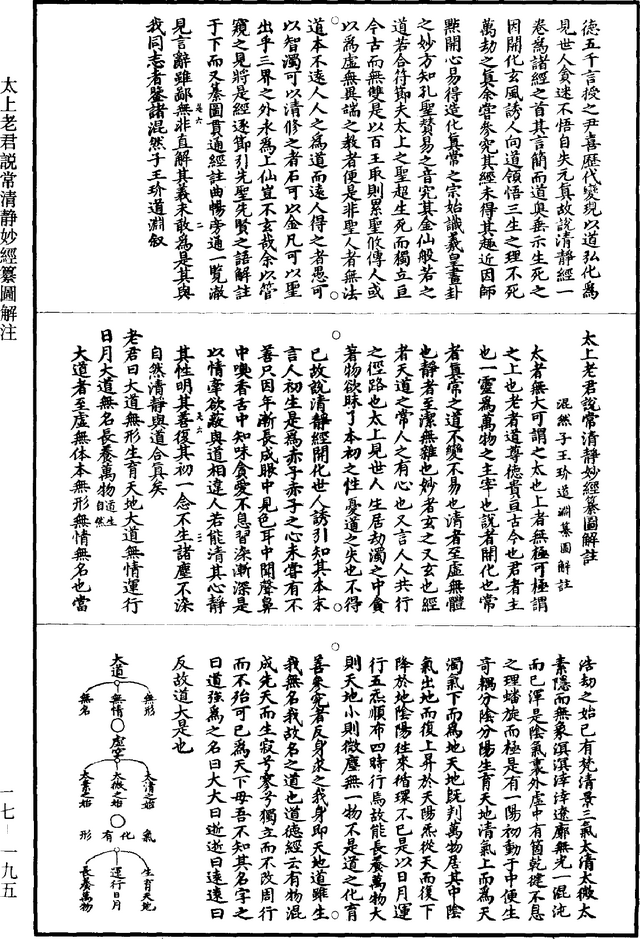 太上老君說常清靜妙經纂圖解注
一七—一九五
德五千言授之尹喜歷代變現以道弘化爲
見世人貪迷不悟自失元真故說清靜經一
卷爲諸經之首其言簡而道奧垂示生死之
因開化玄風誘人向道領悟三生之理不死
萬劫之真余嘗參究其經未得其趣近因師
㸃開心易得造化真常之宗始識羲皇畫卦
之妙方知孔聖賛易之音究其金仙般若之
道若合符節夫太上之聖超生死而獨立亘
今古而無雙是以百王取則累聖攸傳人或
以爲虛無異端之教者便是非聖人者無法
道本不遠人人之爲道而遠人得之者愚可
以智濁可以清修之者石可以金凡可以聖
出乎三界之外永爲上仙豈不玄哉余以管
窺之見將是經逐節引先聖先賢之語解註
于下而又纂圖貫通經註曲暢旁通一覽澈
見言辭雖鄙無非直解其義未敢爲是其與
我同志者鑒諸混然子王玠道淵叙
太上老君說常清靜妙經纂圖解註
混然子王玠道淵纂圖解註
太者無大可謂之太也上者無極可極謂
之上也老者道尊德貴亘古今也君者主
也一靈爲萬物之主宰也說者開化也常
者真常之道不變不易也清者至虛無體
也靜者至潔無雜也妙者玄之又玄也經
者天道之常人之有心也又言人人共行
之徑路也太上見世人生居劫濁之中貪
著物欲昧了本初之性憂道之失也不得
已故說清靜經開化世人誘引知其本末
言人初生是爲赤子赤子之心未嘗有不
善只因年漸長成眼中見色耳中聞聲鼻
中嗅香舌中知味貪愛不息習深漸深是
以情牽欲蔽與道相違人若能清其心靜
其性明其善復其初一念不生諸塵不染
自然清靜與道合真矣
老君曰大道無形生育天地大道無情運行
日月大道無名長養萬物道生自然
大道者至虛無体本無形無情無名也當
浩劫之始已有梵清景三氣太清太微太
素隱而無象溟溟涬涬遼廓無光一混沌
而已渾是陰氣裹外虛中有箇乾健不息
之理蟠旋而極是有一陽初動于中便生
奇耦分陰分陽生育天地清氣上而爲天
濁氣下而爲地天地旣判萬物居其中陰
氣出地而復上昇於天陽炁從天而復下
降於地陰陽往來循環不已是以日月運
行五炁順布四時行焉故能長養萬物大
則天地小則微塵無一物不是道之化育
善參究者反身求之我身即天地道雖生
我無名我故名之道也道德經云有物混
成先天而生寂兮寥兮獨立而不改周行
而不殆可已爲天下母吾不知其名字之
曰道強爲之名曰大大曰逝逝曰遠遠曰
反故道大是也
大道
無形
無情
無名
虛空
太清之始
太微之始
太素之始
氣
化
有
形
生育天地
運行日月
長養萬物